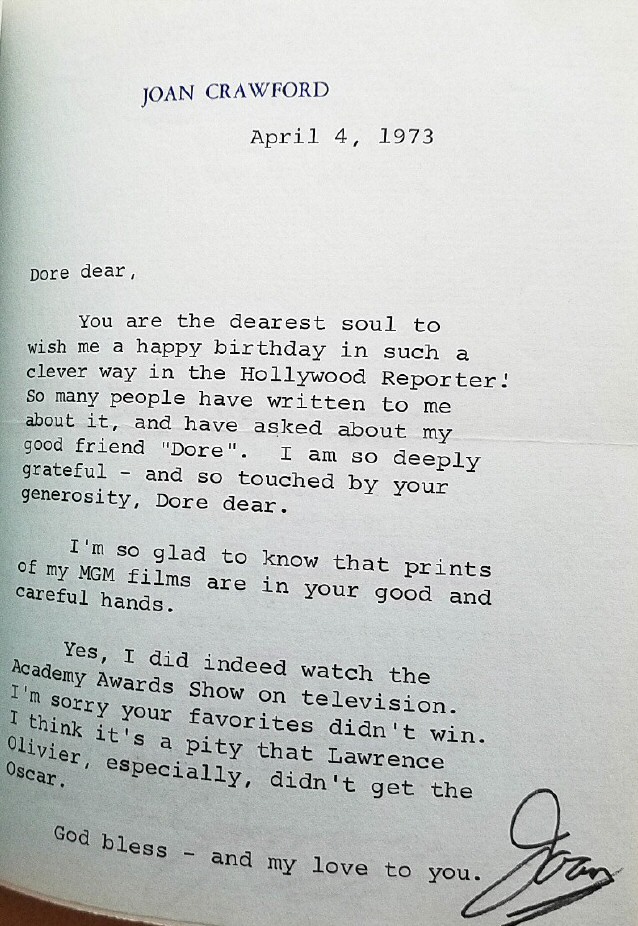 JOAN CRAWFORD
April 4, 1973
Dore dear,
You are the dearest soul to
wish me a happy birthday in such a
clever way in the Hollywood Reporter!
So many people have written to me
about it, and have asked about my
good friend "Dore". I am so deeply
grateful - and so touched by your
generosity, Dore dear.
I'm so glad to know that prints
of my MGM films are in your good and
careful hands.
Yes, I did indeed watch the
Academy Awards Show on television.
I'm sorry your favorites didn't win.
I think it's a pity that Lawrence
Olivier, especially, didn't get the
Oscar.
God bless - and my love to you.
Joan